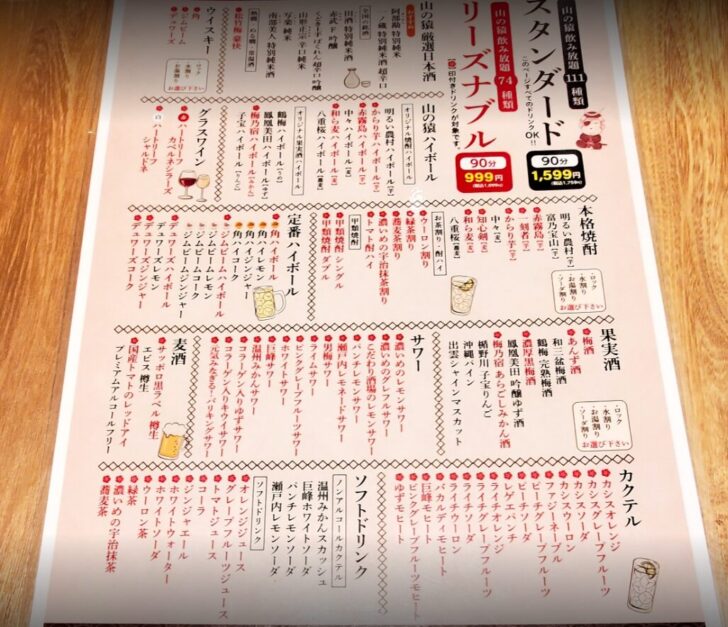 山の猿飲み放題 111種類
スタンダード
このページすべてのドリンクOK!!
90分
1,599円
(税込1,759円)
山の猿飲み放題 74種類
リーズナブル
印付きドリンクが対象です。
90分
999円
(税込1,099円)
山の猿 厳選日本酒
全国の銘酒
阿部勘 特別純米酒
一ノ蔵 特別純米酒 超辛口
田酒 特別純米酒
くどき上手 ばくれん 超辛口 吟醸
赤武 F 吟醸
山形正宗 辛口 純米
写楽 純米
南部美人 特別純米酒
熱燗・ぬる燗・常温酒
松竹梅 豪快
ウイスキー
角
ジムビーム
デュワーズ
・ロック
・水割り
・お湯割り
・ソーダ割り
お選び下さい
山の猿ハイボール
オリジナル焼酎ハイボール
明るい農村ハイボール【芋】
からり芋ハイボール【芋】
赤霧島ハイボール【芋】
中々ハイボール【麦】
和ら麦ハイボール【麦】
八重桜ハイボール【蕎麦】
オリジナル果実酒ハイボール
鶴梅ハイボール【うめ】
鳳凰美田ハイボール【ゆず】
梅乃宿ハイボール【みかん】
子宝ハイボール【りんご】
グラスワイン
赤 ハートリーフ
カベルネシラーズ
白 ハートリーフ
シャルドネ
本格焼酎
明るい農村【芋】
富乃宝山【芋】
赤霧島【芋】
一刻者【芋】
からり芋【芋】
中々【麦】
知心剣【麦】
和ら麦【麦】
八重桜【蕎麦】
・ロック
・水割り
・お湯割り
・ソーダ割り
お選び下さい
お茶割り・酎ハイ
ウーロン割り
緑茶割り
蕎麦茶割り
濃いめの宇治抹茶割り
トマト酎ハイ
甲類焼酎
甲類焼酎 シングル
甲類焼酎 ダブル
定番ハイボール
角ハイボール
角ハイレモン
角ハイジンジャー
角ハイコーク
ジムビームハイボール
ジムビームレモン
ジムビームジンジャー
ジムビームコーク
デュワーズハイボール
デュワーズレモン
デュワーズジンジャー
デュワーズコーク
果実酒
梅酒
あんず酒
和三盆梅酒
鶴梅 完熟梅酒
濃厚黒糖梅酒
鳳凰美田 吟醸ゆず酒
梅乃宿 あらごしみかん酒
楯野川 子宝りんご
沖縄パイン
出雲シャインマスカット
・ロック
・水割り
・お湯割り
・ソーダ割り
お選び下さい
サワー
濃いめのレモンサワー
濃いめのグレフルサワー
こだわり酒場のレモンサワー
パンチレモンサワー
瀬戸内レモネードサワー
男梅サワー
ライムサワー
ピンクグレープフルーツサワー
ホワイトサワー
巨峰サワー
温州みかんサワー
コラーゲン入りゆずサワー
コラーゲン入りキウイサワー
元気みなぎる!バリキングサワー
麦酒
サッポロ黒ラベル 樽生
エビス 樽生
国産トマトのレッドアイ
プレミアムアルコールフリー
カクテル
カシスオレンジ
カシスグレープフルーツ
カシスソーダ
カシスウーロン
ファジーネーブル
ピーチグレープフルーツ
ピーチソーダ
レゲエパンチ
ライチオレンジ
ライチソーダ
ライチグレープフルーツ
ライチウーロン
バカルディモヒート
巨峰モヒート
ピンクグレープフルーツモヒート
ゆずモヒート
ソフトドリンク
ノンアルコールカクテル
温州みかんスカッシュ
巨峰ホワイトソーダ
パンチレモンソーダ
瀬戸内レモンソーダ
ソフトドリンク
オレンジジュース
グレープフルーツジュース
トマトジュース
コーラ
ジンジャエール
ホワイトウォーター
ホワイトソーダ
ウーロン茶
緑茶
濃いめの宇治抹茶
蕎麦茶